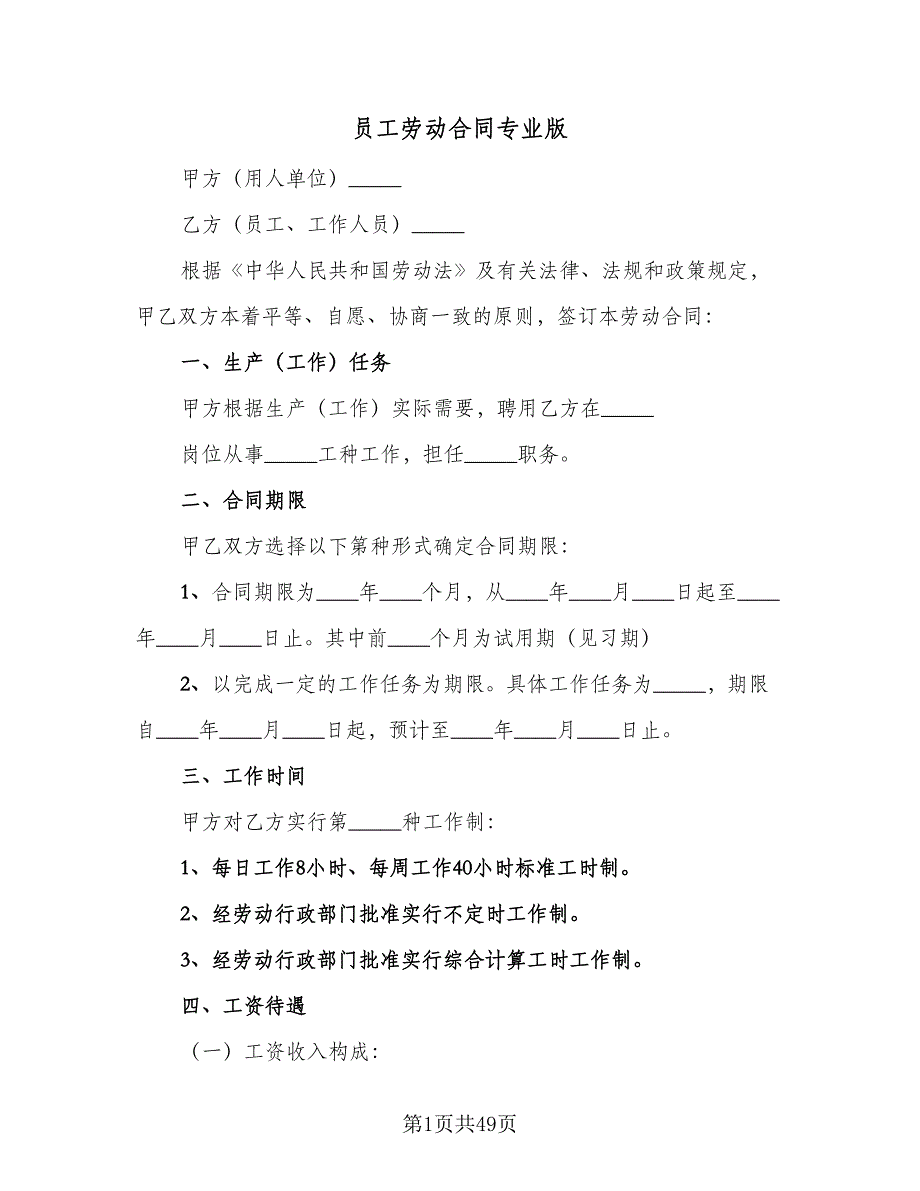 员工劳动合同专业版
甲方（用人单位）_____
乙方（员工、工作人员）_____
根据《中华人民共和国劳动法》及有关法律、法规和政策规定，
甲乙双方本着平等、自愿、协商一致的原则，签订本劳动合同：
一、生产（工作）任务
甲方根据生产（工作）实际需要，聘用乙方在_____
岗位从事_____工种工作，担任_____职务。
二、合同期限
甲乙双方选择以下第种形式确定合同期限：
1、合同期限为____年____个月，从____年____月____日起至____
年____月____日止。其中前____个月为试用期（见习期）
2、以完成一定的工作任务为期限。具体工作任务为_____，期限
自____年____月____日起，预计至____年____月____日止。
三、工作时间
甲方对乙方实行第_____种工作制：
1、每日工作8小时、每周工作40小时标准工时制。
2、经劳动行政部门批准实行不定时工作制。
3、经劳动行政部门批准实行综合计算工时工作制。
四、工资待遇
（一）工资收入构成：
第1页共49页